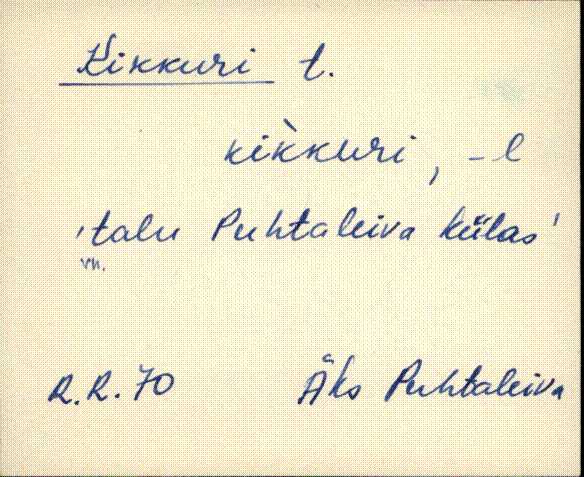 Kikkuri t.
kik̀kuri, -l
'talu Puhtaleiva külas'
vn.
R.R.70 Äks Puhtaleiva